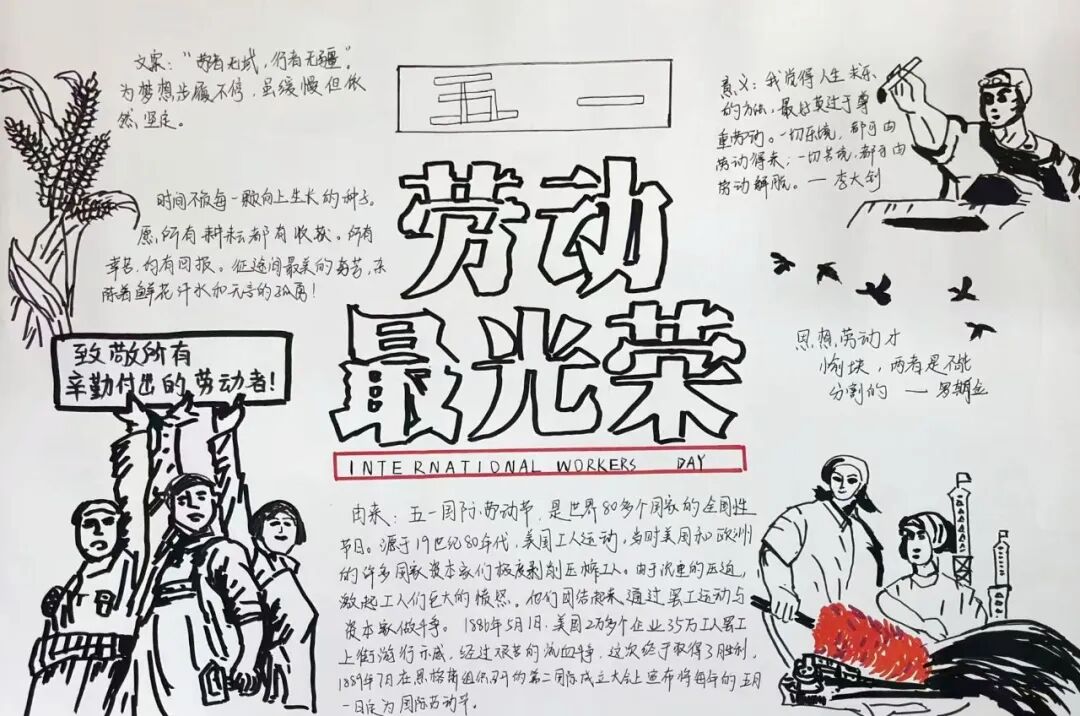 五一
劳动
最光荣
INTERNATIONAL WORKERS DAY
文案:“劳者无域,行者无疆”。
为梦想步履不停,虽缓慢但依
然坚定。
时间不散每一颗向上生长的种子。
愿所有耕耘都有收获。所有
辛苦,均有回报。征途间最美的
陈着鲜花汗水和无言的孤勇!
致敬所有
辛勤付出的劳动者!
意义:我觉得人生求乐
的方法,最好莫过于尊
重劳动。一切乐境,都可由
劳动得来,一切苦境,都可由
劳动解脱。—李大钊
思想,劳动才
愉快,两者是不能
分割的 —罗斯金
由来:五一国际劳动节,是世界80多个国家的全国性
节日。源于19世纪80年代,美国工人运动,当时美国和欧洲
的许多国家资本家们极度剥削压榨工人。由于沉重的压迫,
激起工人们巨大的愤怒。他们团结起来通过罢工运动与
资本家做斗争。1886年5月1日,美国2万多个企业35万工人罢工
上街游行示威,经过艰苦的流血斗争,这次终于取得了胜利,
1889年7月在恩格斯组织召开的第二国际成立大会上宣布将每年的五月
一日定为国际劳动节。